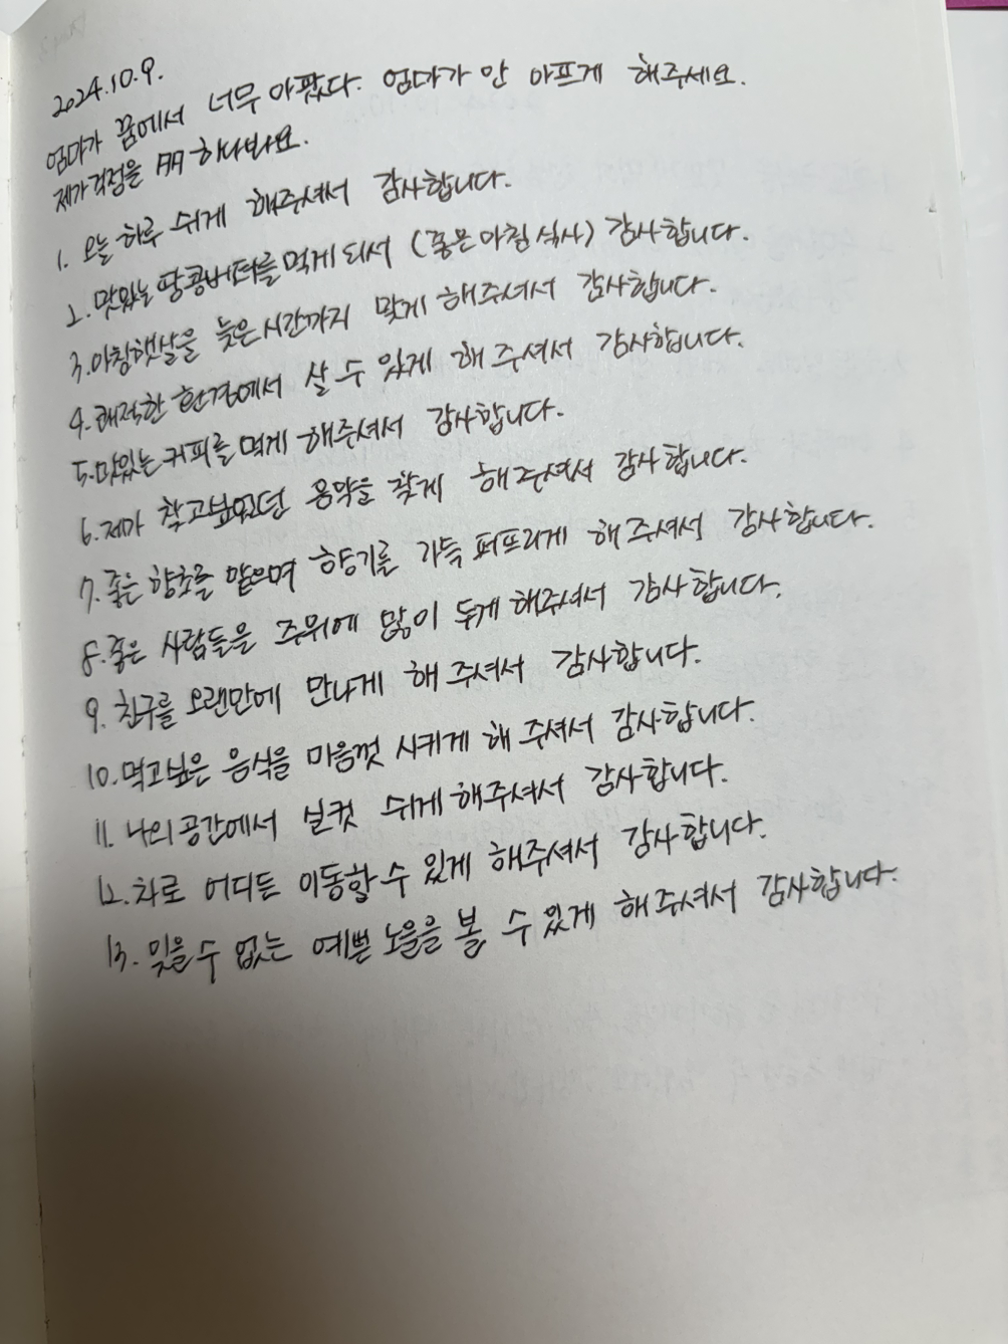 2024.10.9.
엄마가 꿈에서 너무 아팠다. 엄마가 안 아프게 해주세요.
제가 걱정을 하나봐요.
1. 오늘 하루 쉬게 해주셔서 감사합니다.
2. 맛있는 땅콩버터를 먹게 되서 (좋은 아침 식사) 감사합니다.
3. 아침햇살을 늦은 시간까지 맞게 해주셔서 감사합니다.
4. 쾌적한 환경에서 살 수 있게 해 주셔서 감사합니다.
5. 맛있는 커피를 먹게 해주셔서 감사합니다.
6. 제가 찾고싶었던 음악을 찾게 해주셔서 감사합니다.
7. 좋은 향초를 맡으며 향기를 가득 퍼뜨리게 해주셔서 감사합니다.
8. 좋은 사람들을 주위에 많이 두게 해주셔서 감사합니다.
9. 친구를 오랜만에 만나게 해 주셔서 감사합니다.
10. 먹고싶은 음식을 마음껏 시키게 해 주셔서 감사합니다.
11. 나의 공간에서 실컷 쉬게 해주셔서 감사합니다.
12. 차로 어디든 이동할 수 있게 해주셔서 감사합니다.
13. 잊을 수 없는 예쁜 노을을 볼 수 있게 해주셔서 감사합니다.